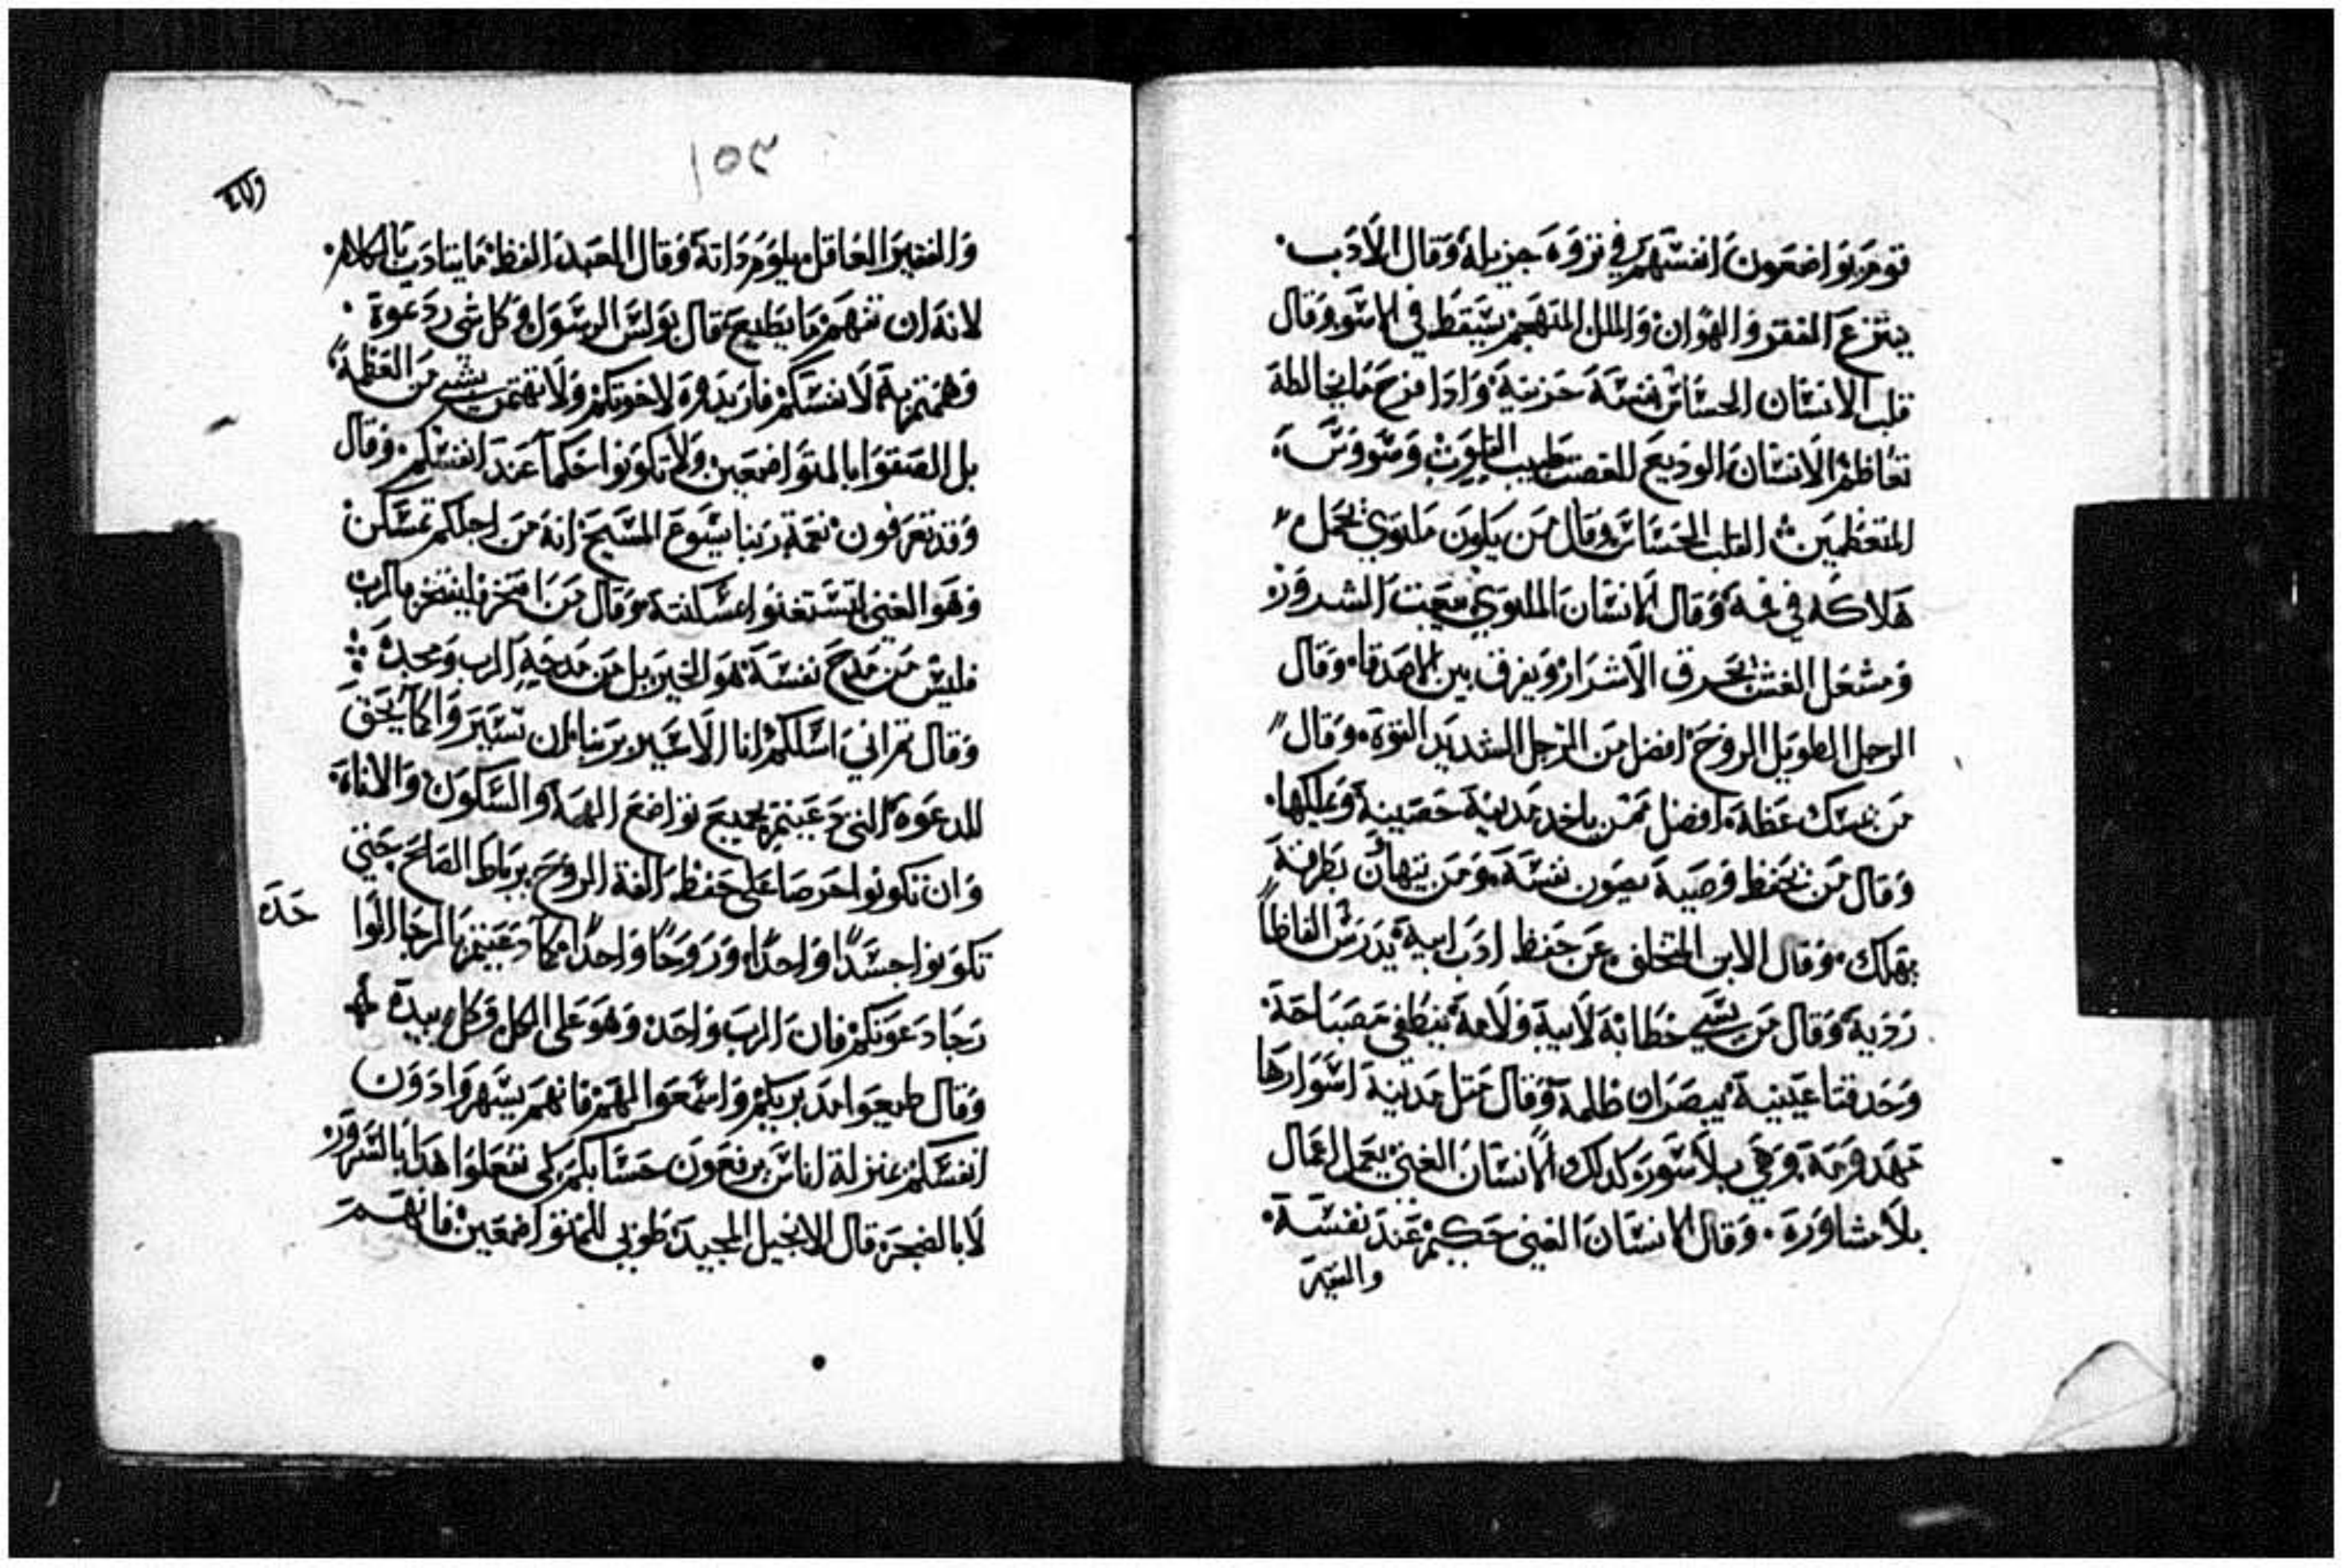 قوم يواضعون انفسهم في ثروة جزيلة وقال الادب
ينتزع الفقر والهوان والملك المتهجم يسقط في الاسو وقال
قلب الانسان الحساس نفسه حزينة واذا فرح ما يخالطه
تعاظم الانسان الوديع للغضب طبيب القلوب وسووس
المتعظمين القلب الحساس وقال من يكون ملتوي يحمل
هلاكه في فمه وقال الانسان الملتوي يبعث الشرور
ومشعل الغش يحرق الاشرار ويفرق بين الاصدقا وقال
الرجل الطويل الروح افضل من الرجل الشديد القوة وقال
من يمسك غظه افضل ممن ياخد مدينة حصينة ويملكها
وقال من يحفظ وصيه يصون نفسه ومن يتهاون بطرقه
يهلك وقال الابن المتخلف عن حفظ ادب ابيه يدرس الفاظاً
رديه وقال من يسي خطابه لابيه ولامه ينطفي مصباحه
وحدقتا عينيه يبصران ظلمه وقال متل مدينة اسوارها
مهدومة وهي بلا سور كدلك الانسان الغني يعمل اعمال
بلا مشاورة وقال الانسان الغني حكيم عند نفسه
والفقير
١٥٣
والفقير العاقل يلوم داته وقال العبد الفظ ما يتادب بالكلام
لانه ان تفهم ما يطيع وقال بولس الرسول في كل شي دعوة
وهمتم به لانفسكم فاريدوه لاخوتكم ولا تهتمن بشي من العظمة
بل الصقوا بالمتواضعين ولا تكونوا حكما عند انفسكم وقال
وقد تعرفون نعمة ربنا يسوع المسيح انه من اجلكم تمسكن
وهو الغني لتستغنوا بمسكنته وقال من افتخر فليفتخر بالرب
فليس من مدح نفسه هو الخير بل من مدحه الرب ومجده
وقال تم اني اسلكم انا الاسير بربنا ان تسيروا كما يحق
للدعوة التي دعيتم بجميع تواضع الهمة والسكون والاناه
وان تكونوا حرصا على حفظ الفة الروح برباط الصلح بحتي
تكونوا جسداً واحداً وروحاً واحداً كما دعيتم بالرجا الوا
حده
رجا دعوتكم فان الرب واحد وهو على الكل وكل بيده
وقال طيعوا مدبريكم واسمعوا لهم فانهم يسهروا دون
انفسكم بمنزلة اناس يرفعون حسابكم لكي تفعلوا هدا بالسرور
لا بالضجر قال الانجيل المجيد طوبى للمتواضعين فانهم